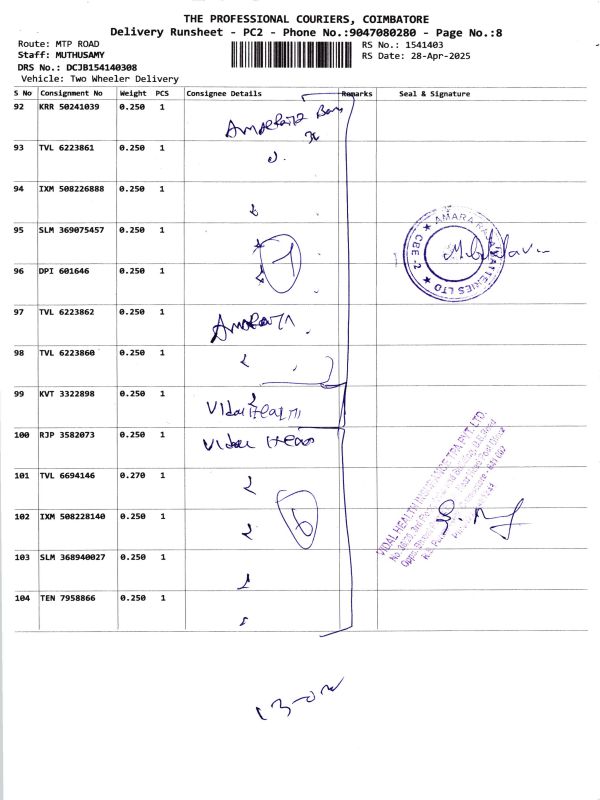 THE PROFESSIONAL COURIERS, COIMBATORE
Delivery Runsheet - PC2 - Phone No.:9047080280 - Page No.:8
Route: MTP ROAD RS No.: 1541403
Staff: MUTHUSAMY RS Date: 28-Apr-2025
DRS No.: DCJB154140308
Vehicle: Two Wheeler Delivery
S No Consignment No Weight PCS Consignee Details Remarks Seal & Signature
92 KRR 50241039 0.250 1
93 TVL 6223861 0.250 1
94 IXM 508226888 0.250 1
95 SLM 369075457 0.250 1
AMARA RAJA BATTERIES LTD
CBE-2
96 DPI 601646 0.250 1
7
97 TVL 6223862 0.250 1
98 TVL 6223860 0.250 1
99 KVT 3322898 0.250 1 Vidal Health
100 RJP 3582073 0.250 1 Vidal Heal
VIDAL HEALTH INSURANCE TPA PVT. LTD.
101 TVL 6694146 0.270 1
102 IXM 508228140 0.250 1
6
103 SLM 368940027 0.250 1
104 TEN 7958866 0.250 1